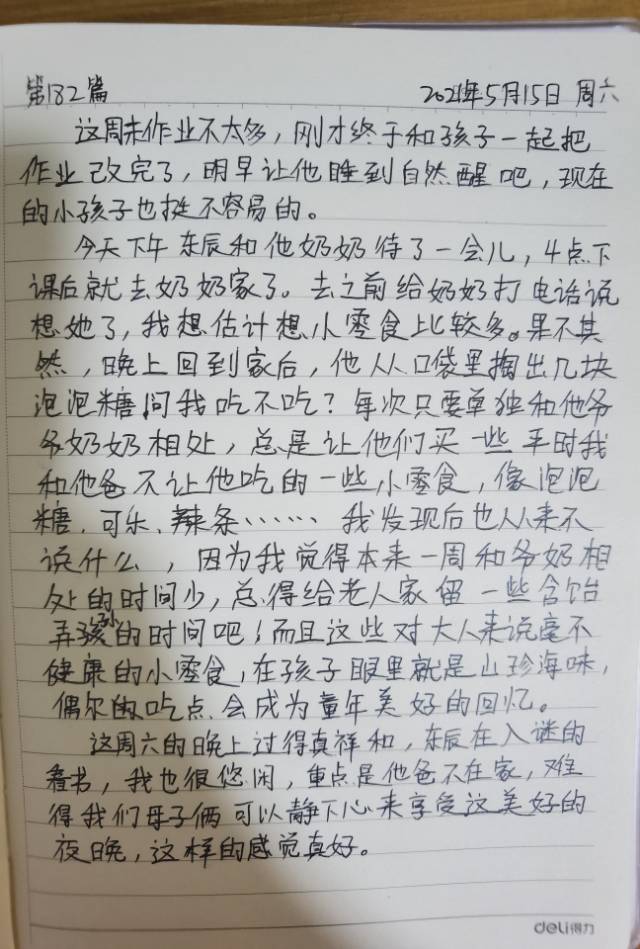 第182篇 2021年5月15日 周六
这周末作业不太多，刚才终于和孩子一起把
作业改完了，明早让他睡到自然醒吧，现在
的小孩子也挺不容易的。
今天下午东辰和他奶奶待了一会儿，4点下
课后就去奶奶家了。去之前给奶奶打电话说
想她了，我想估计想小零食比较多。果不其
然，晚上回到家后，他从口袋里掏出几块
泡泡糖问我吃不吃？每次只要单独和他爷
爷奶奶相处，总是让他们买一些平时我
和他爸不让他吃的一些小零食，像泡泡
糖、可乐、辣条⋯⋯ 我发现后也从来不
说什么，因为我觉得本来一周和爷奶相
处的时间少，总得给老人家留一些含饴
弄孙的时间吧！而且这些对大人来说毫不
健康的小零食，在孩子眼里就是山珍海味，
偶尔的吃点会成为童年美好的回忆。
这周六的晚上过得真祥和，东辰在入谜的
看书，我也很悠闲，重点是他爸不在家，难
得我们母子俩可以静下心来享受这美好的
夜晚，这样的感觉真好。
deli得力